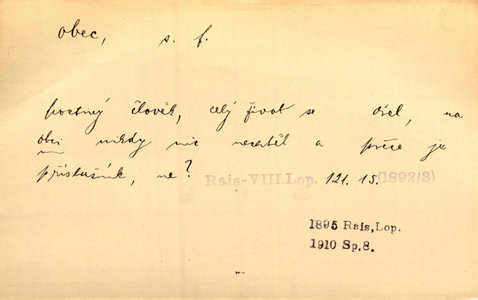 obec, s. f.
poctivý člověk, celý život se dřel, na
obci nikdy nic nechtěl a přece je
příslušník, ne? Rais-VIII.Lop. 121. 15. (1892/3)
1895 Rais,Lop.
1910 Sp.8.